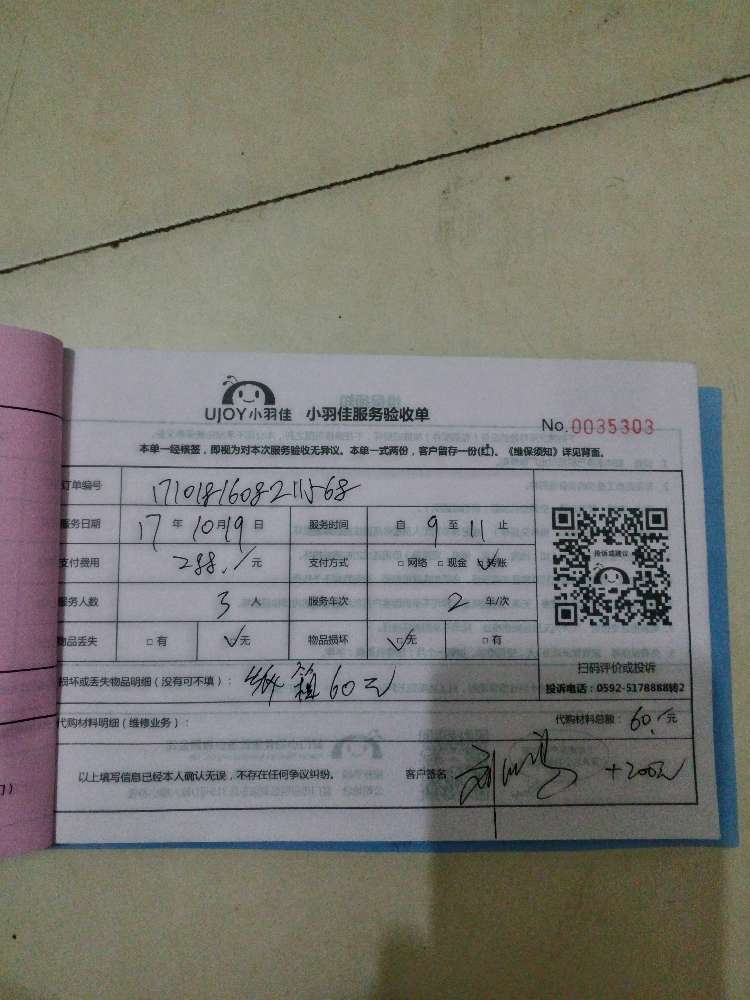 UJOY小羽佳 小羽佳服务验收单
No.0035303
本单一经核签，即视为对本次服务验收无异议。本单一式两份，客户留存一份(红)。《维保须知》详见背面。
订单编号 1710181608211568
服务日期 17年10月19日 服务时间 自9至11止
支付费用 288.-/元 支付方式 □网络 □现金 ☑转账
服务人数 3人 服务车次 2车/次
物品丢失 □有 ☑无 物品损坏 ☑无 □有
投诉或建议
扫码评价或投诉
投诉电话：0592-5178888转2
损坏或丢失物品明细（没有可不填）：纸箱60元
代购材料明细（维修业务）： 代购材料总额：60.-/元
以上填写信息已经本人确认无误，不存在任何争议纠纷。 客户签名 +200元